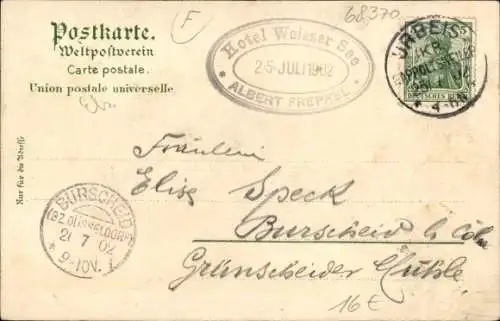 F
68,370
Postkarte.
Weltpostverein
Carte postale.
Union postale universelle
Nur für die Adresse
Hotel Weisser See
25·JULI1902
ALBERT FREPPEL
URBEIS
KR.
RAPPOLTSWEILER
DEUTSCHES REICH
Fräulein
Elise Speck
Burscheid b Cöln
Grünscheider Mühle
BURSCHEID
(BZ.DÜSSELDORF)
7 02
9-10V.
16 €